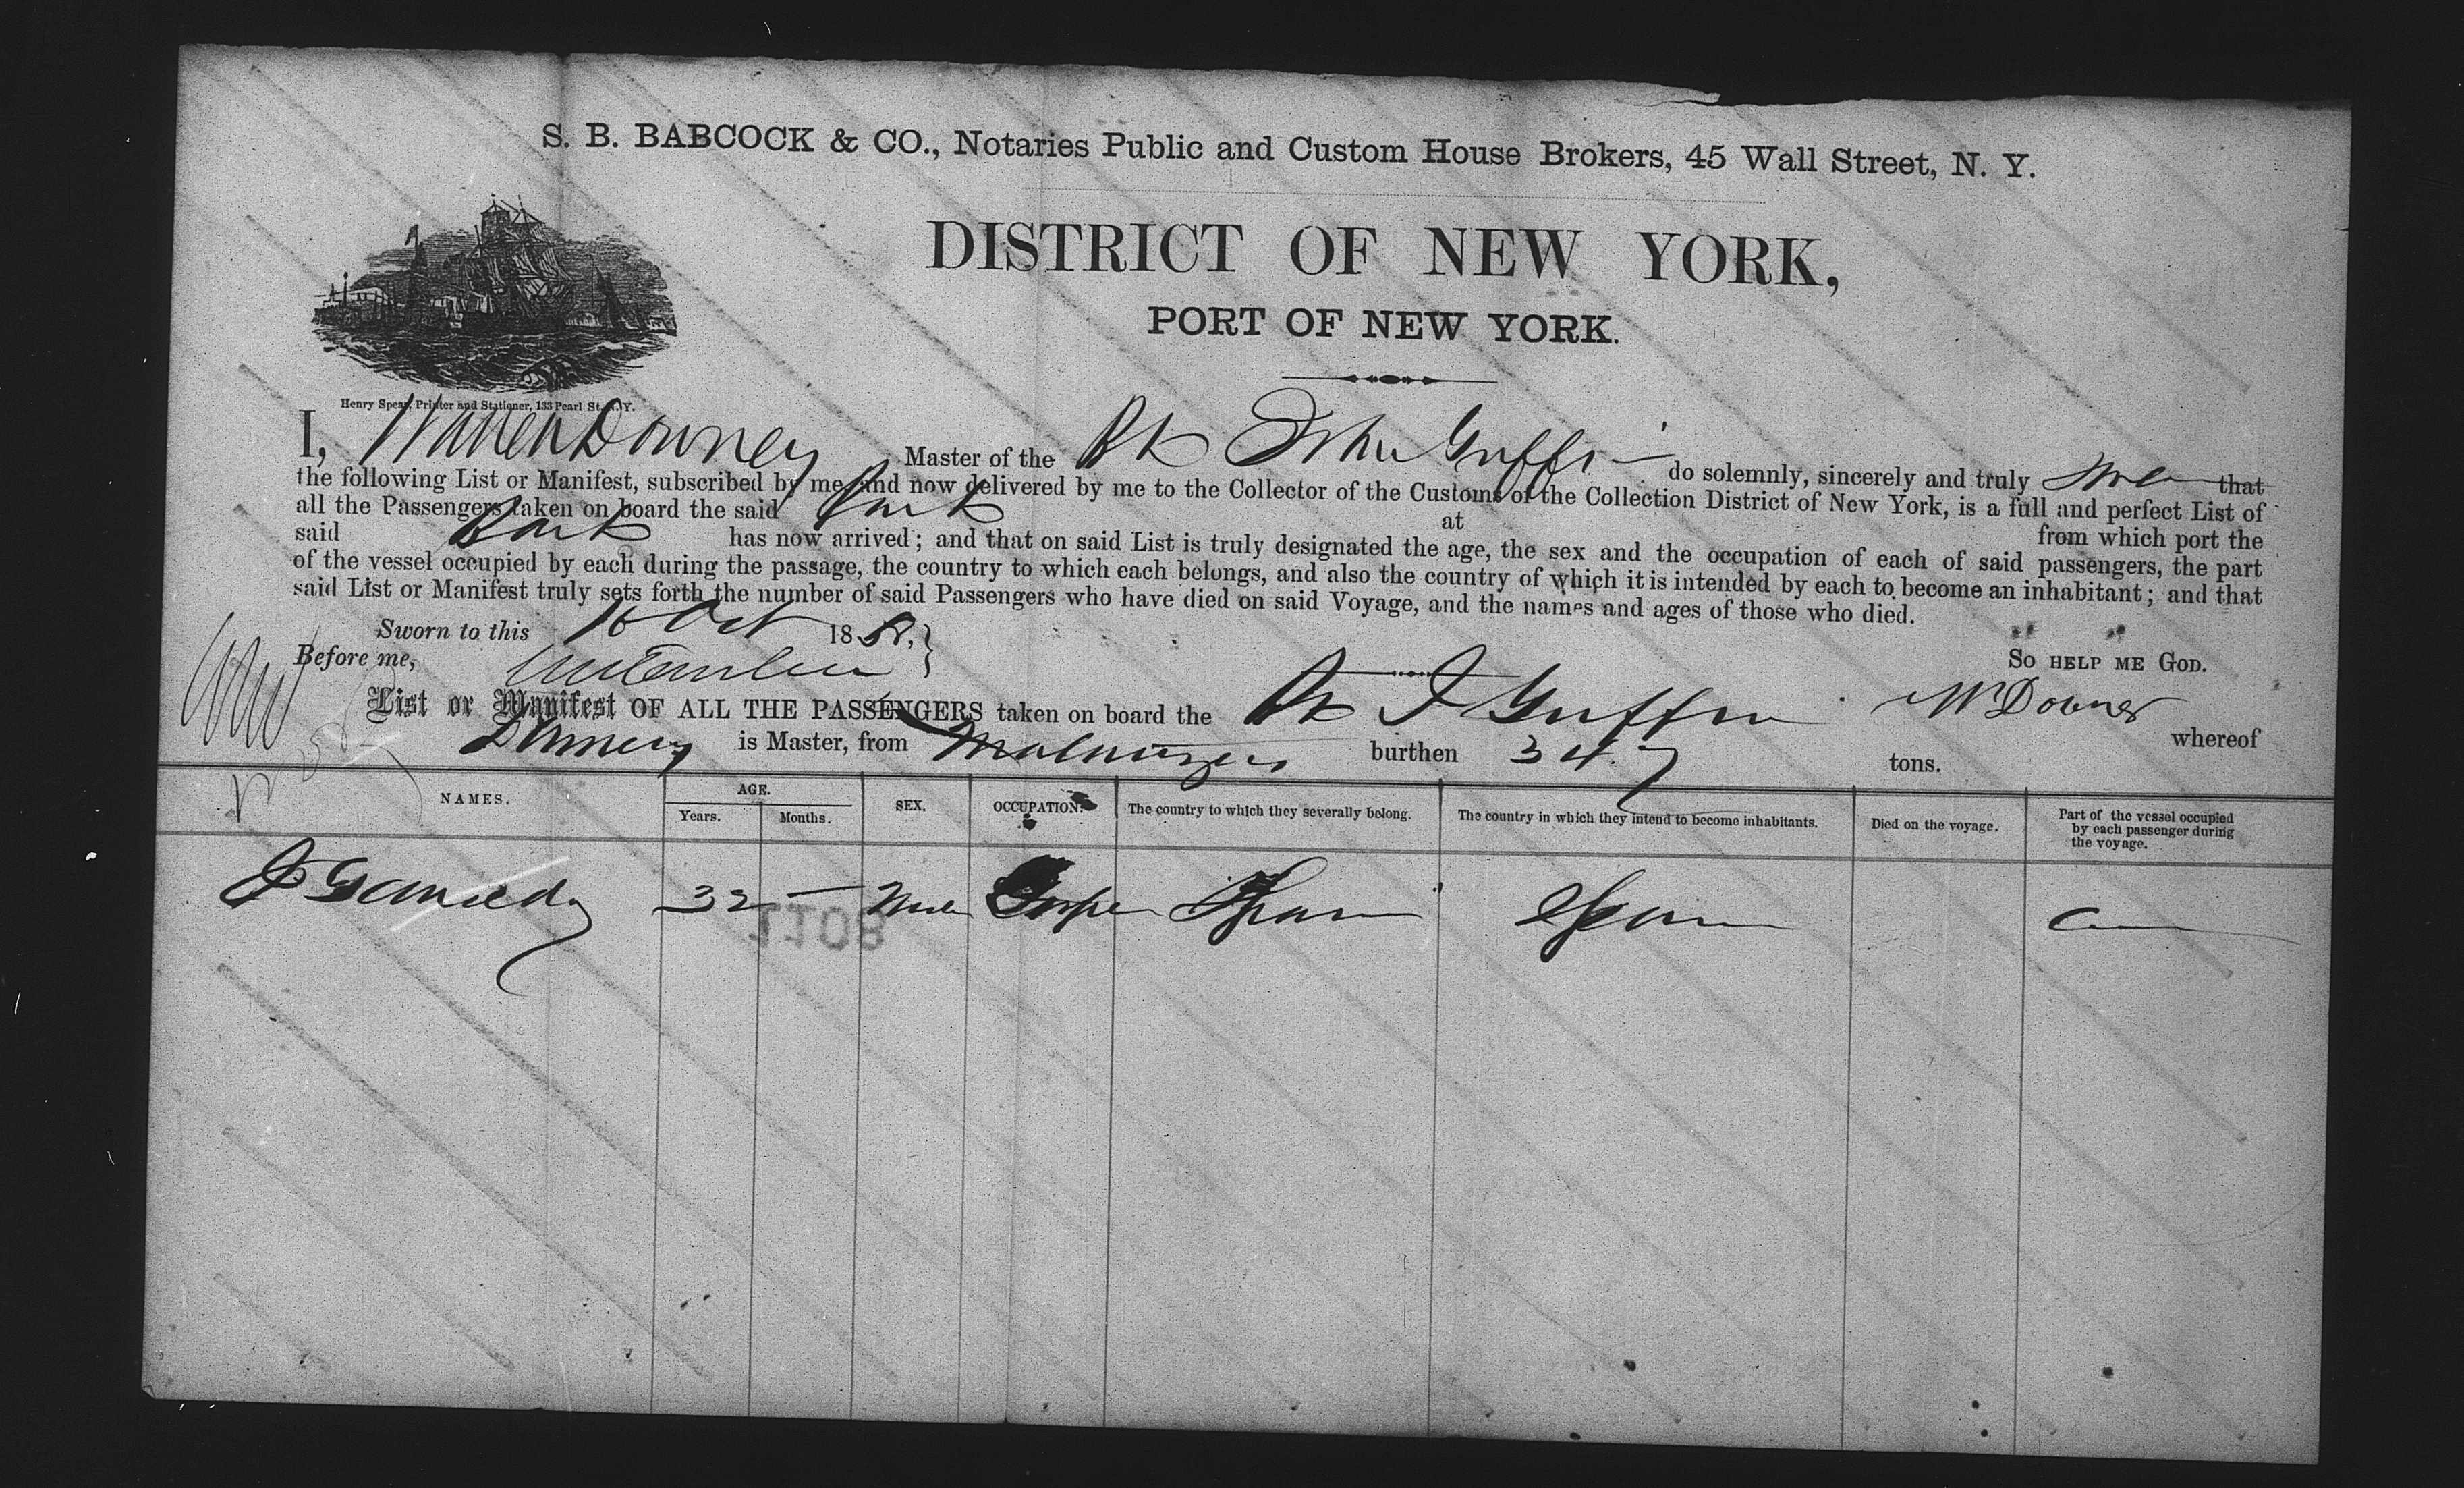 S. B. BABCOCK & CO., Notaries Public and Custom House Brokers, 45 Wall Street, N. Y.
DISTRICT OF NEW YORK,
PORT OF NEW YORK.
Henry Spear, Printer and Stationer, 133 Pearl St. N. Y.
I, Warren Downey Master of the Bk John Griffin do solemnly, sincerely and truly that
the following List or Manifest, subscribed by me and now delivered by me to the Collector of the Customs of the Collection District of New York, is a full and perfect List of
all the Passengers taken on board the said Bark at from which port the
said Bark has now arrived; and that on said List is truly designated the age, the sex and the occupation of each of said passengers, the part
of the vessel occupied by each during the passage, the country to which each belongs, and also the country of which it is intended by each to become an inhabitant; and that
said List or Manifest truly sets forth the number of said Passengers who have died on said Voyage, and the names and ages of those who died.
Sworn to this 16 Oct 1858, So HELP ME GOD.
Before me,
W Downey
List or Manifest OF ALL THE PASSENGERS taken on board the Bk J Griffin whereof
Downey is Master, from burthen 347 tons.
NAMES. AGE. Years. Months. SEX. OCCUPATION. The country to which they severally belong. The country in which they intend to become inhabitants. Died on the voyage. Part of the vessel occupied by each passenger during the voyage.
J 32 — Male Spain Spain
1108